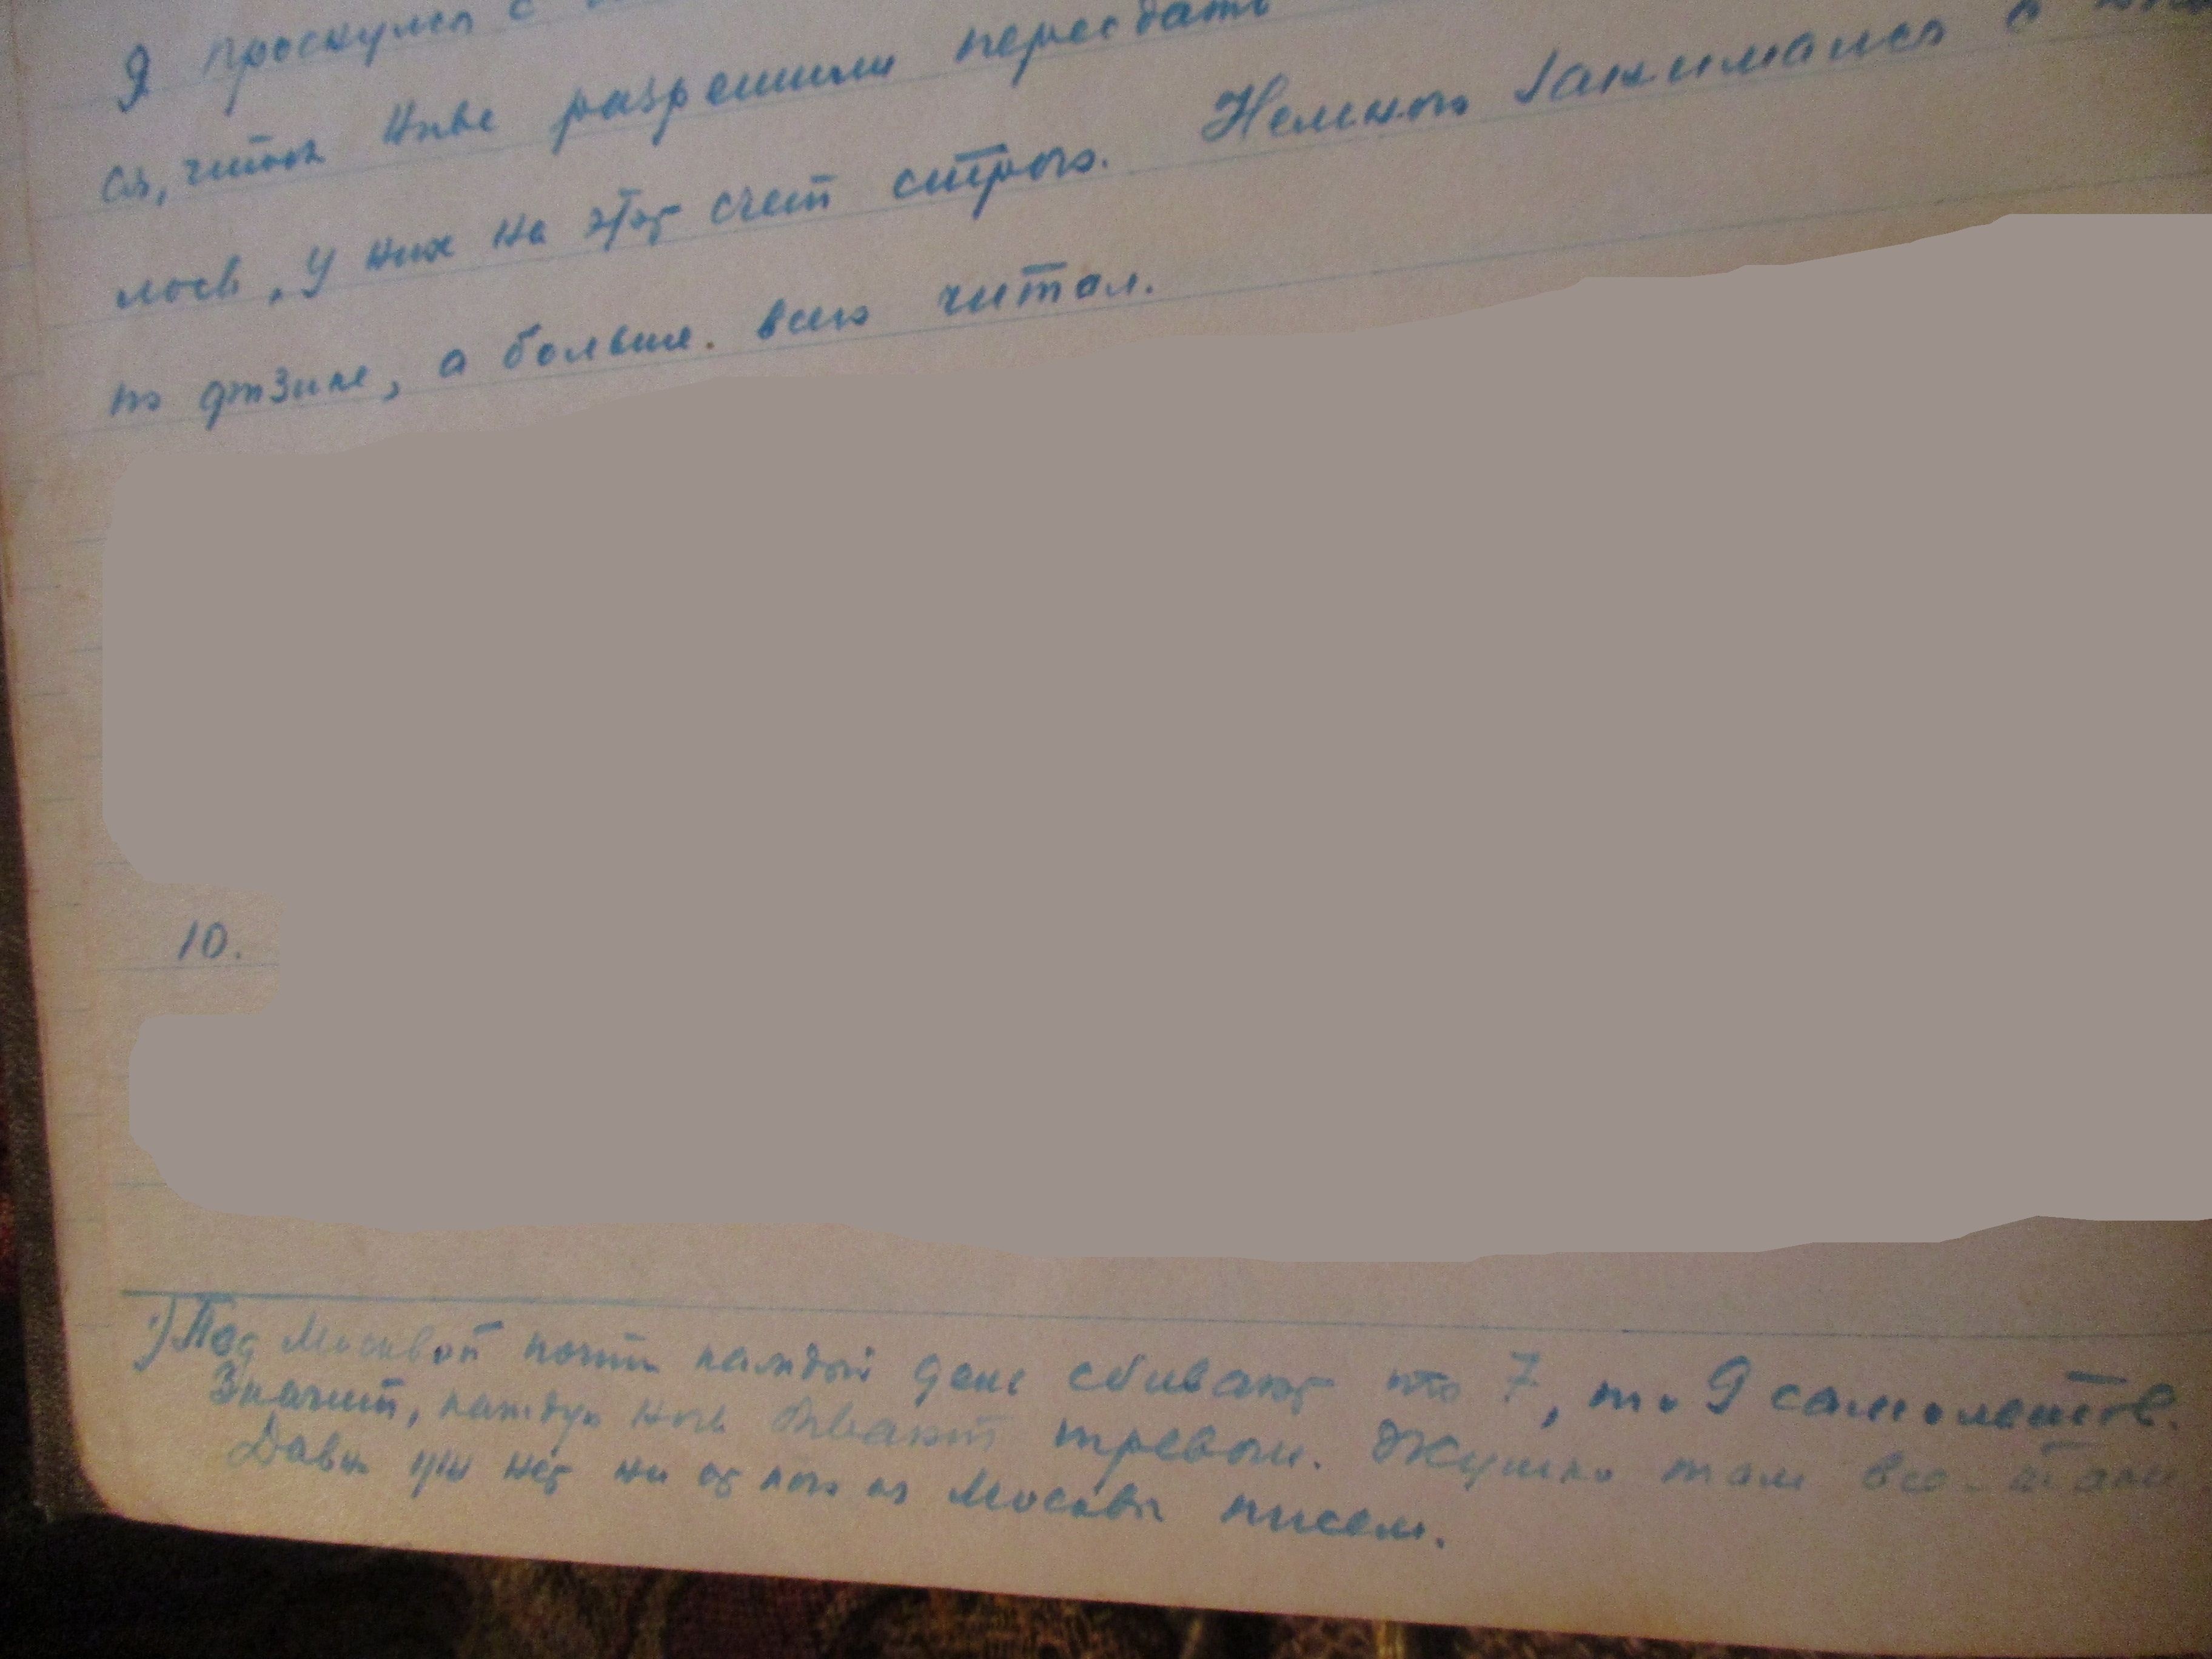 Я проснулся с
ся, чтоб Инве разрешили пересдать
лось. У них на этот счет строго. Немного занимался с
по физике, а больше всего читал.
10.
1) Под Москвой почти каждый день сбивают то 7, то 9 самолетов.
Значит, каждую ночь бывают тревоги. Жутко там все-таки
Давно уж нет ни от кого из Москвы писем.